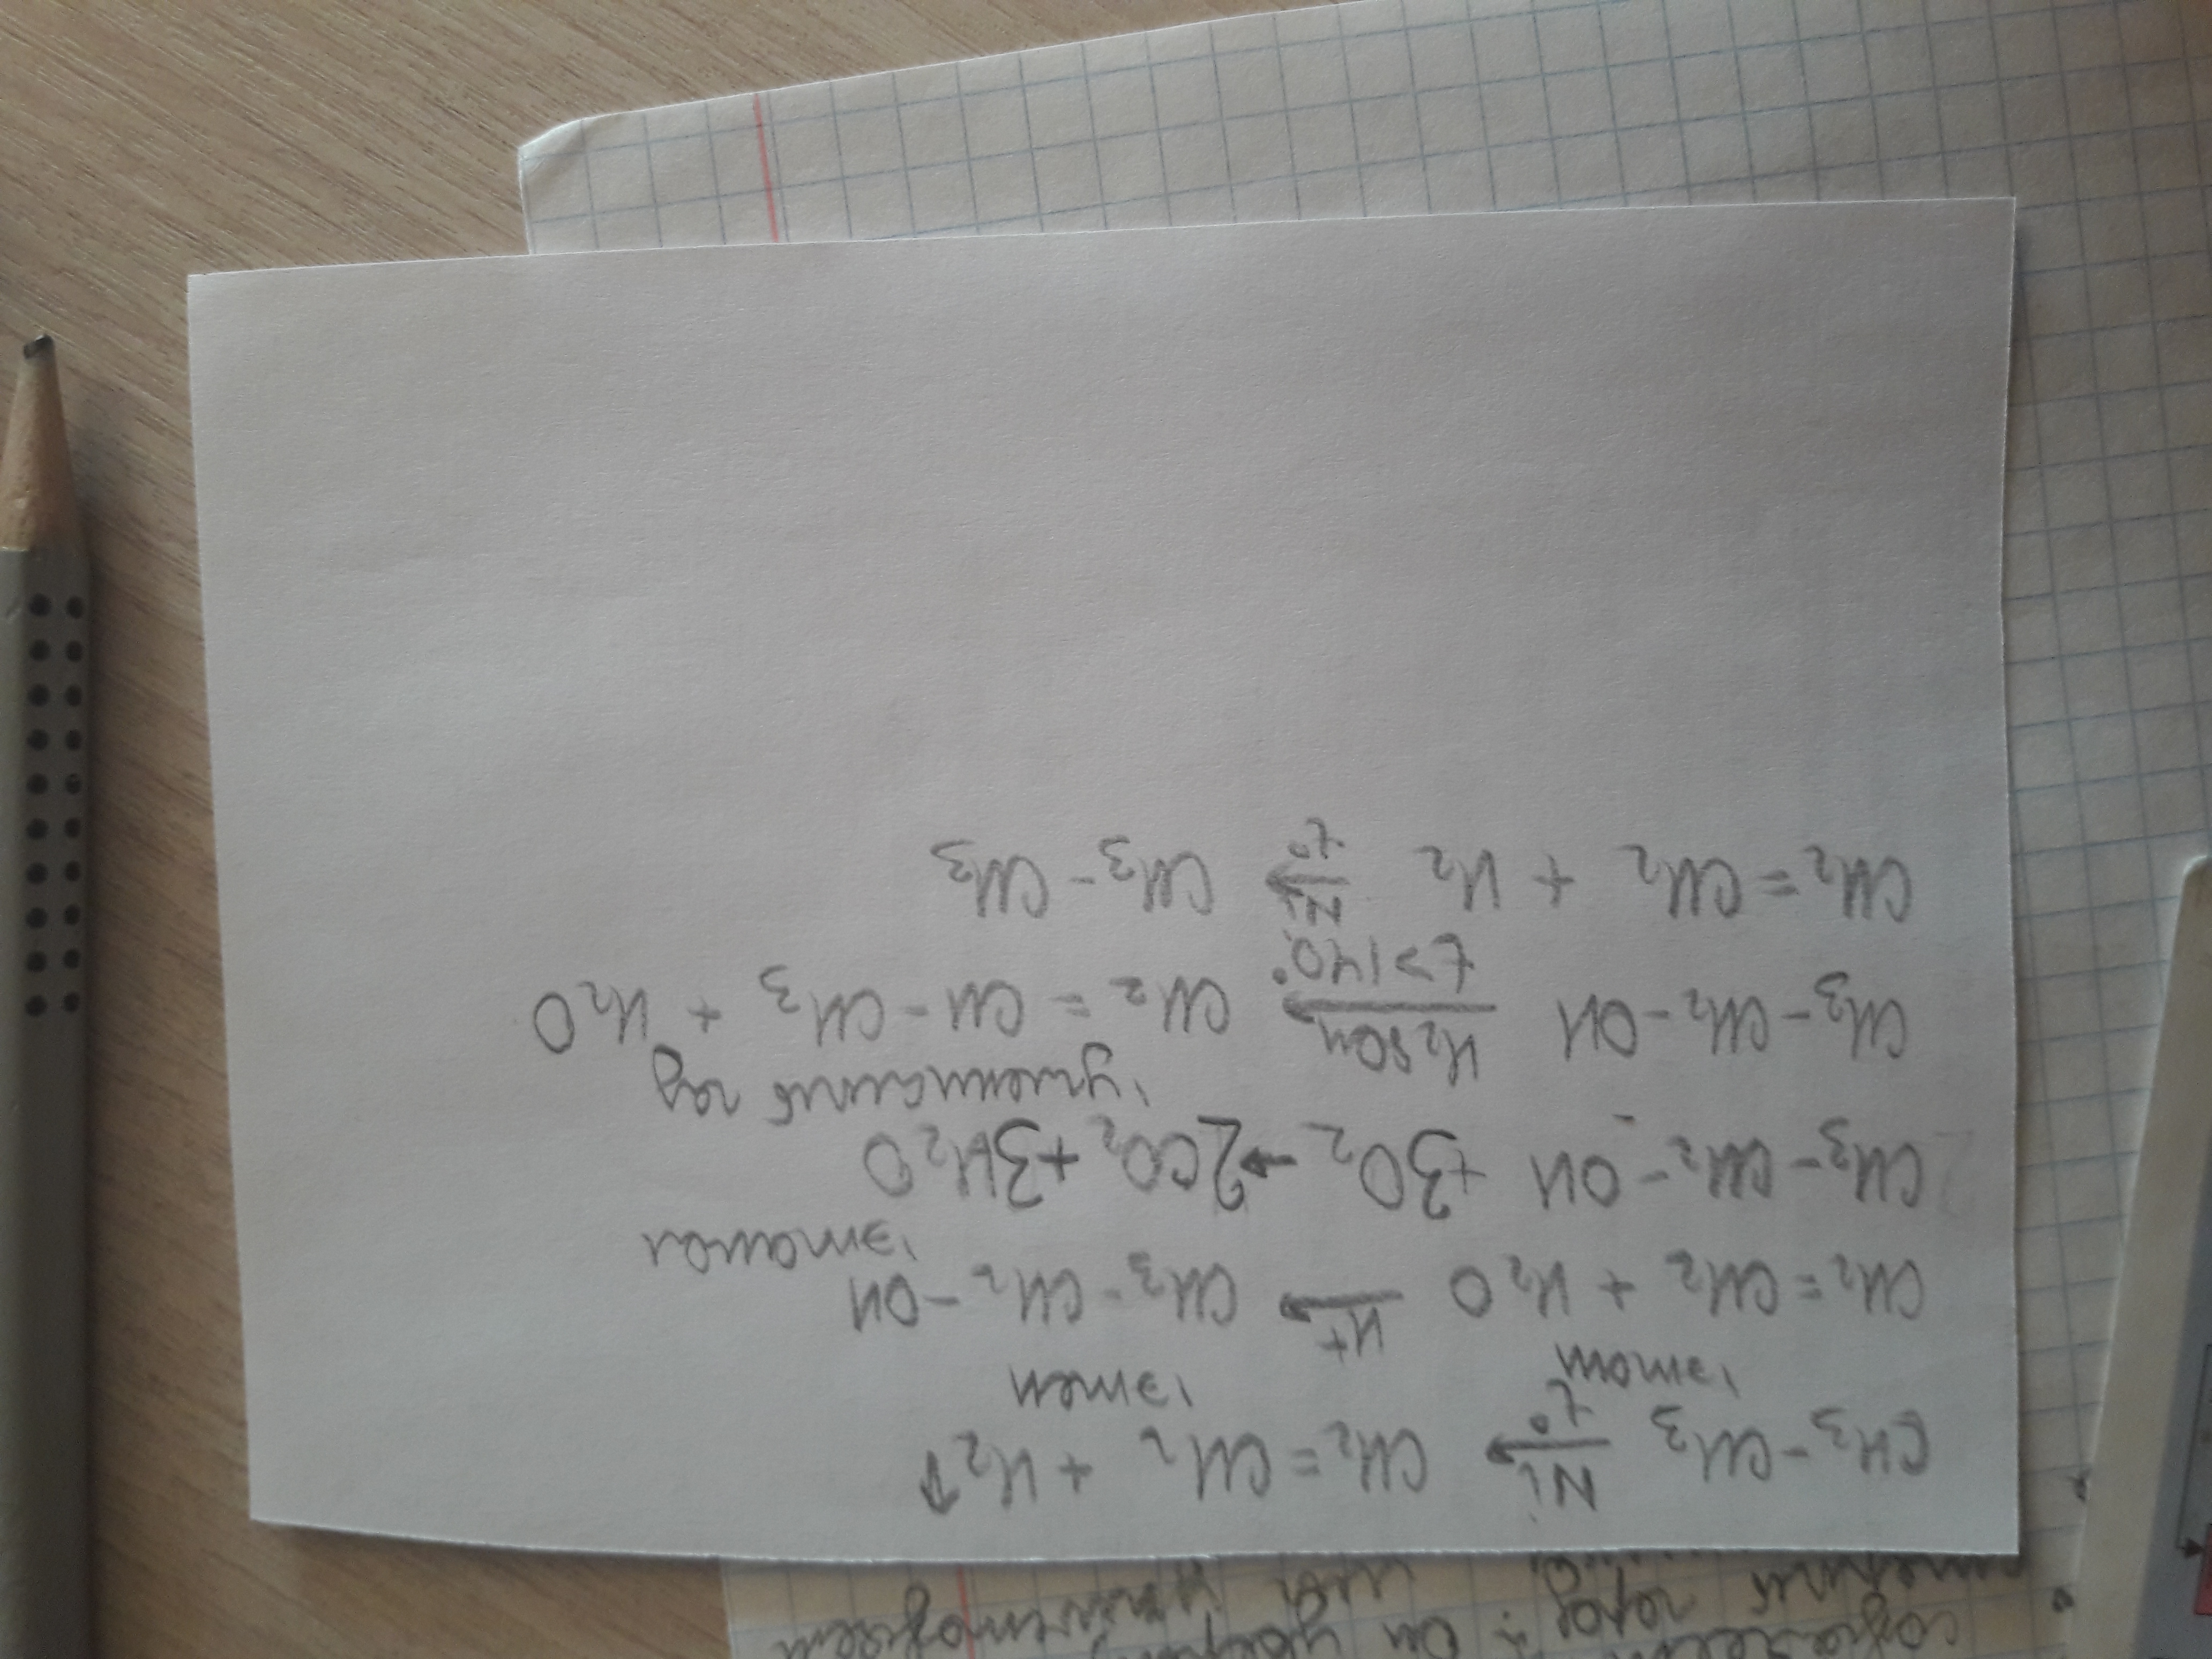 CH3-CH3 Ni t° CH2=CH2 + H2↑
этан этен
CH2=CH2 + H2O H+ CH3-CH2-OH
этанол
CH3-CH2-OH +3O2 → 2CO2 +3H2O
углекислый газ
CH3-CH2-OH H2SO4 t>140° CH2=CH-CH3 + H2O
CH2=CH2 + H2 Ni t° CH3-CH3